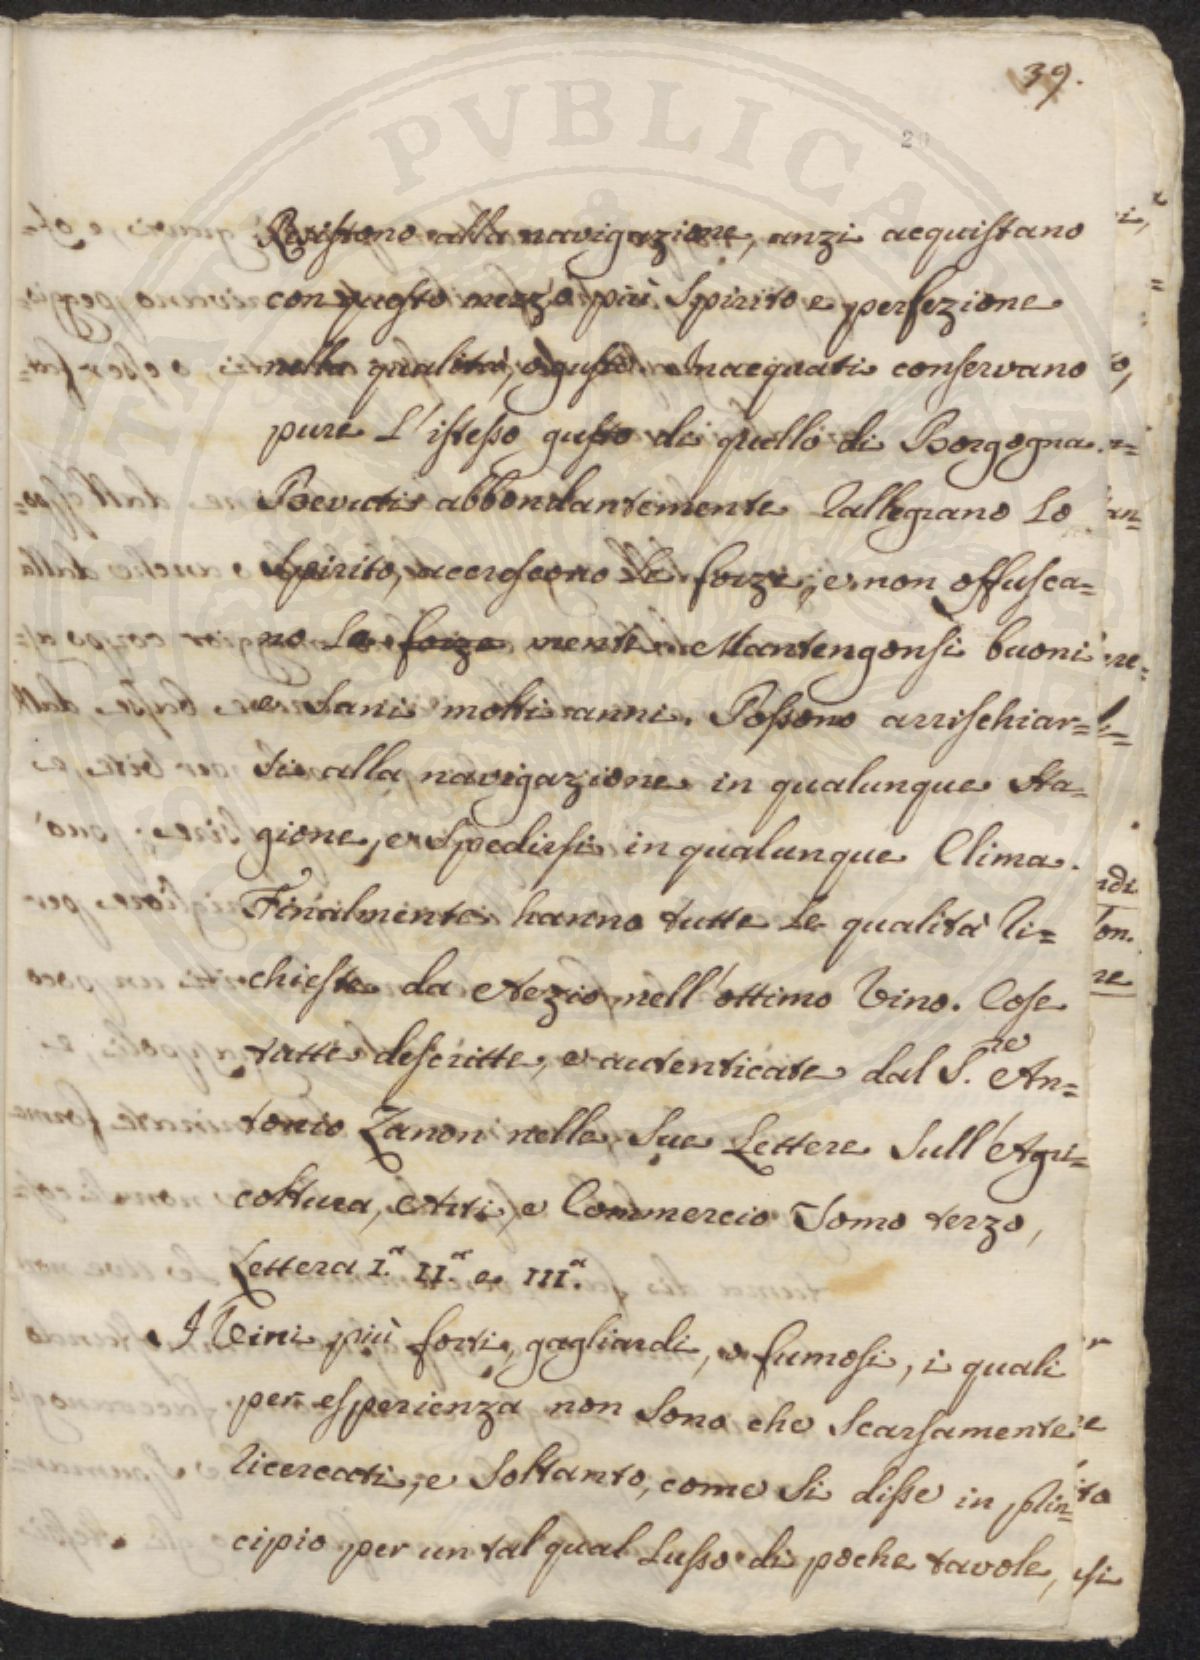 39.
20
Resistono alla navigazione, anzi acquistano
con questo mezzo più Spirito e perfezione
nella qualità, e gusto. Inacquati conservano
pure L'istesso gusto di quello di Borgogna.
Bevuti abbondantemente rallegrano Lo
Spirito, accrescono Le forze, e non offusca=
no La forze mente. Mantengonsi buoni
e Sani molti anni. Possono arrischiar=
si alla navigazione in qualunque Sta=
gione, e Spedirsi in qualunque Clima.
Finalmente hanno tutte Le qualità ri=
chieste da Aezio nell'ottimo Vino. Cose
tutte descritte, e autenticate dal S.re An=
tonio Zanon nelle Sue Lettere Sull'Agri=
coltura, Arti, e Commercio Tomo terzo,
Lettera I.a II.a e III.a
I Vini più forti, gagliardi, e fumosi, i quali
per esperienza non Sono che Scarsamente
ricercati, e Soltanto, come Si disse in prin=
cipio per un tal qual Lusso di poche tavole, si